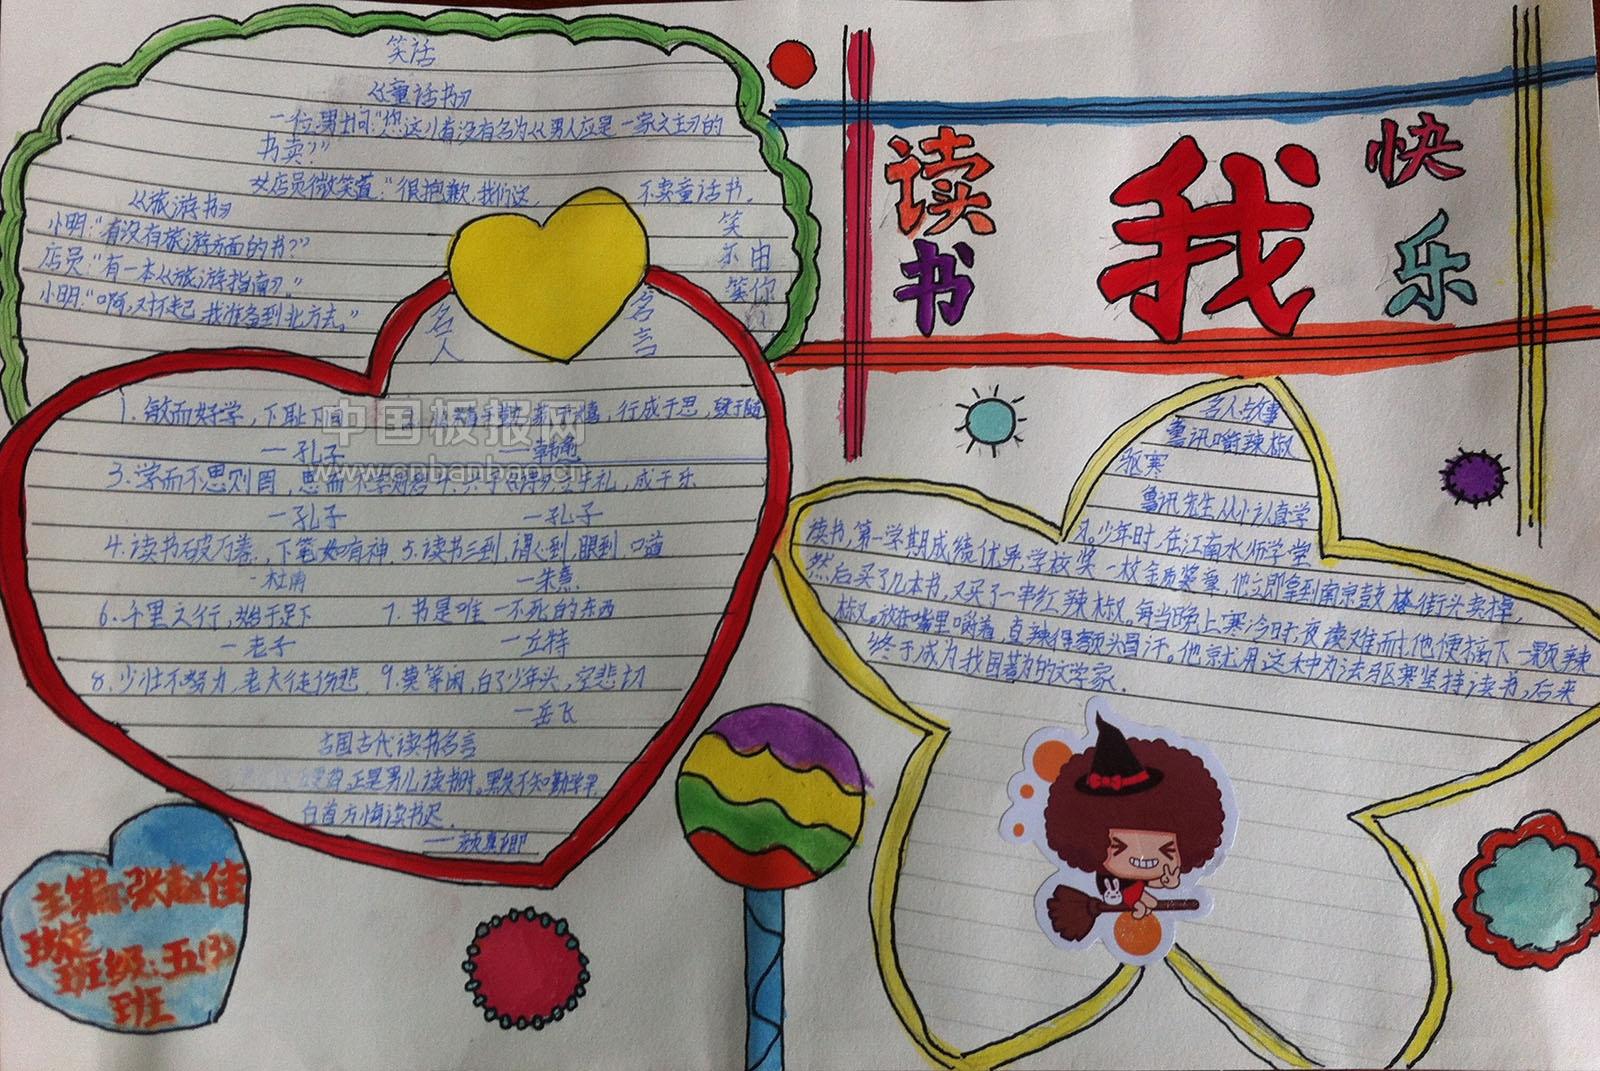 笑话
《童话书》
一位男士问:“您这儿有没有名为《男人应是一家之主》的
书卖?”
女店员微笑道:“很抱歉,我们这, 不卖童话书。
《旅游书》
小明:“有没有旅游方面的书?”
店员:“有一本《旅游指南》。”
小明:“啊,对不起,我准备到北方去。”
笑
不由
笑你
读书
我
快乐
名人
名言
1.敏而好学,下耻下问
行成于思,毁于随
—孔子
—韩愈
3.学而不思则罔,思而不学则
礼,成于乐
—孔子
—孔子
4.读书破万卷,下笔如有神. 5.读书三到,谓心到,眼到
-杜甫
—朱熹
6.千里之行,始于足下
7.书是唯一不死的东西
—老子
—丘特
8.少壮不努力,老大徒伤悲, 9.莫等闲,白了少年头,空悲切
—岳飞
古国古代读书名言
正是男儿读书时。黑发不知勤学早
白首方悔读书迟.
—颜真卿
中国板报网
www.cnbanbao.cn
名人故事
鲁讯嚼辣椒
驱寒
鲁讯先生从小认真学
读书,第一学期成绩优异,学校奖一枚金质奖章,他立即拿到南京鼓楼街头卖掉,
少年时,在江南水师学堂
然后买了几本书,又买了一串红辣椒。每当晚上寒冷时,夜读难耐,他便摘下一颗辣
椒,放在嘴里嚼着,直辣得额头冒汗。他就用这种办法驱寒坚持读书,后来
终于成为我国著名的文学家.
主编:张
班级:五(3)
班